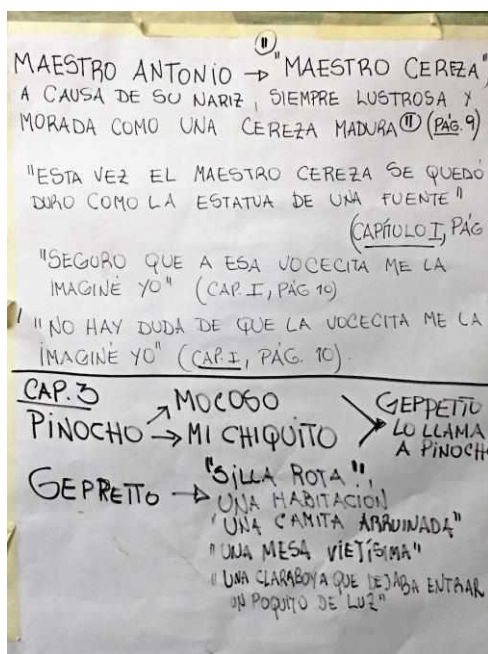 MAESTRO ANTONIO → "MAESTRO CEREZA",
A CAUSA DE SU NARIZ, SIEMPRE LUSTROSA Y
MORADA COMO UNA CEREZA MADURA" (PÁG. 9)
"ESTA VEZ EL MAESTRO CEREZA SE QUEDÓ
DURO COMO LA ESTATUA DE UNA FUENTE"
(CAPÍTULO I, PÁG
"SEGURO QUE A ESA VOCECITA ME LA
IMAGINÉ YO" (CAP. I, PÁG 10)
"NO HAY DUDA DE QUE LA VOCECITA ME LA
IMAGINÉ YO" (CAP. I, PÁG. 10).
CAP. 3
PINOCHO → MOCOSO
→ MI CHIQUITO
GEPPETTO
LO LLAMA
A PINOCH
GEPRETTO → "SILLA ROTA",
UNA HABITACIÓN
"UNA CAMITA ARRUINADA"
"UNA MESA VIETÍSIMA"
"UNA CLARABOYA QUE DEJABA ENTRAR
UN POQUITO DE LUZ"